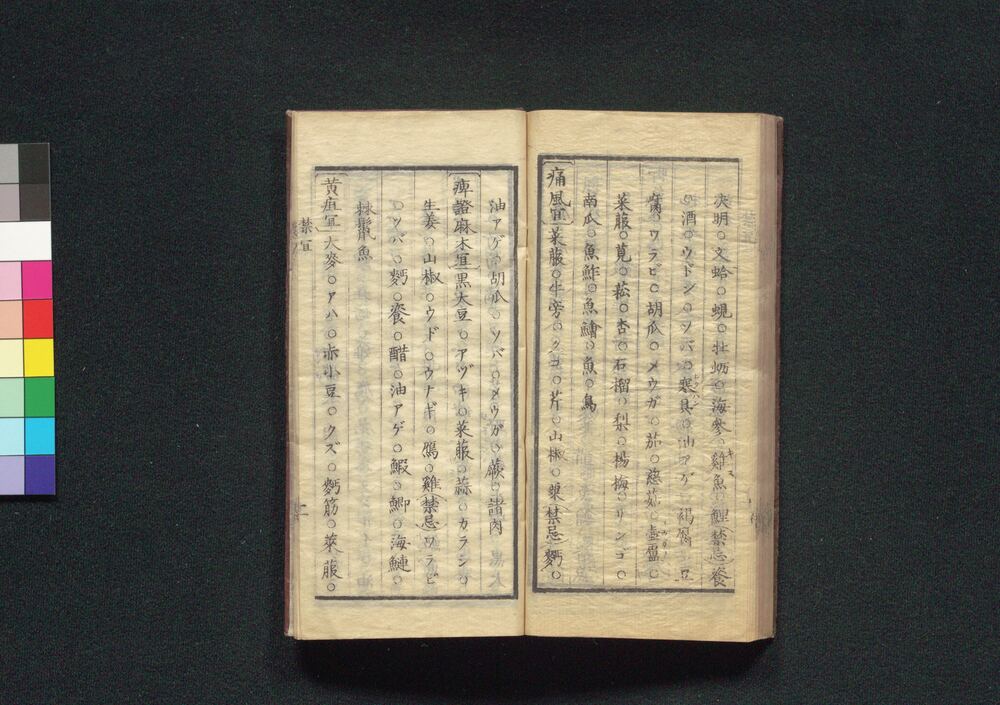 決明○文蛤○蜆○牡蛎○海參○雞魚○鯉禁忌餈
○酒○ウドン○ソバ○寒具○油アゲ
○ワラビ○胡瓜○メウガ○茄○慈姑○壷盧○
菜菔○莧○菘○杏○石榴○梨○楊梅○リンゴ○
南瓜○魚鮓○魚鱠○魚○鳥
痛風宜菜菔○牛旁○クコ○芹○山椒○禁忌麪○
油アゲ○胡瓜○ソバ○メウガ○蕨○諸肉
痺證麻木宜黒大豆○アヅキ○菜菔○蒜○カラシ○
生姜○山椒○ウド○ウナギ○鴈○雞禁忌ワラビ
○ソバ○麪○餈○醋○油アゲ○鰕○鯽○海鰱○
棘鬣魚
黄疸宜大麥○アハ○赤小豆○クズ○麪筋○菜菔○
禁宜